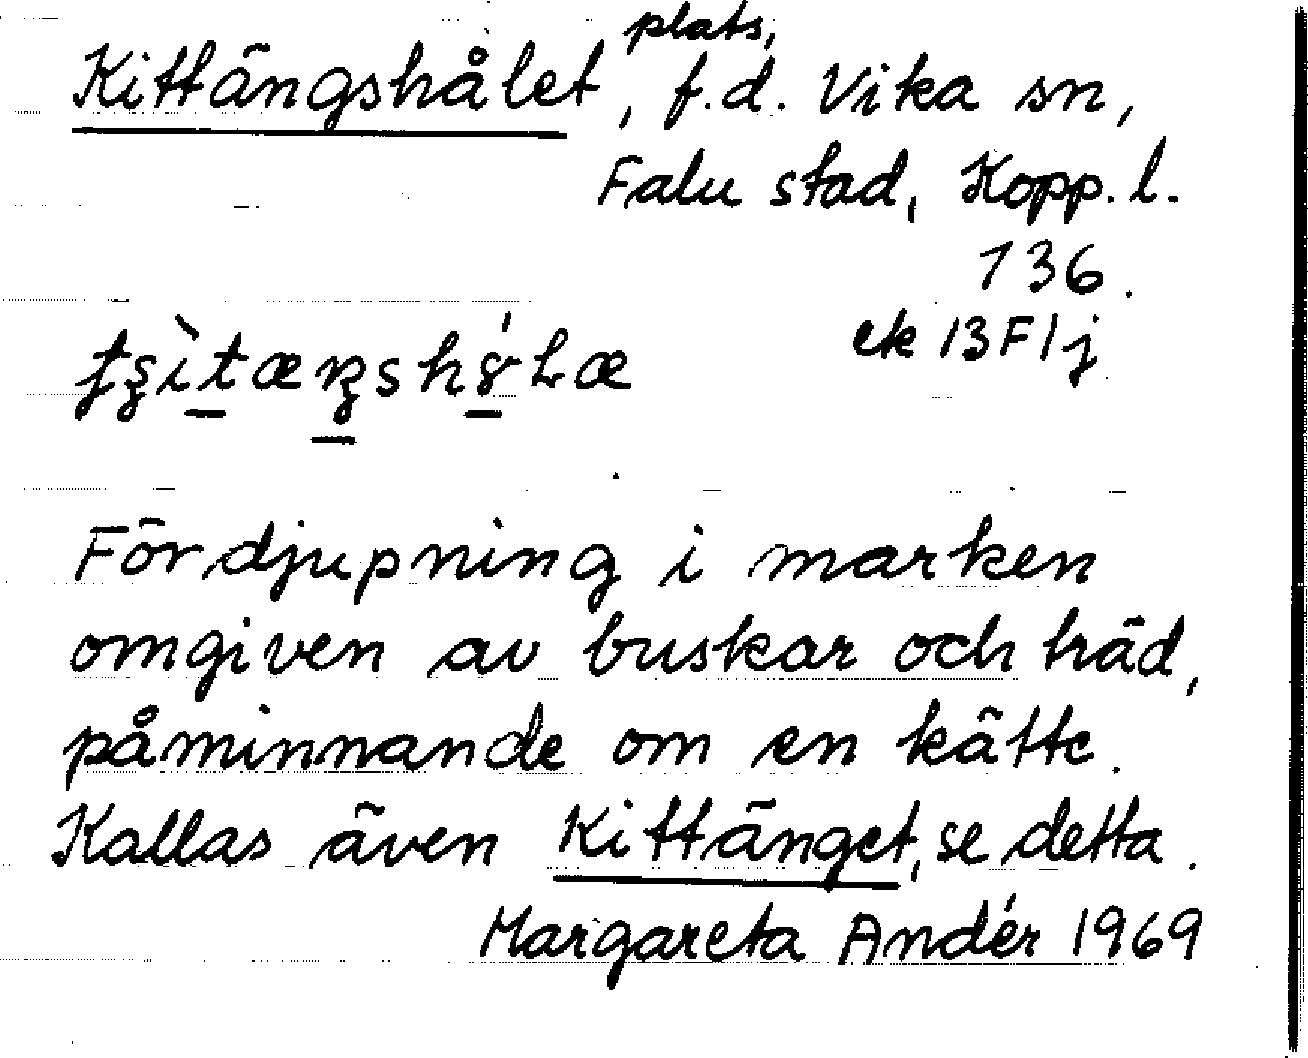 Kittängshålet, plats, f.d. Vika sn,
Falu stad, Kopp. l.
136.
ek 13F1j
Fördjupning i marken
omgiven av buskar och träd,
påminnande om en kätte.
Kallas även Kittänget, se detta.
Margareta Andér 1969